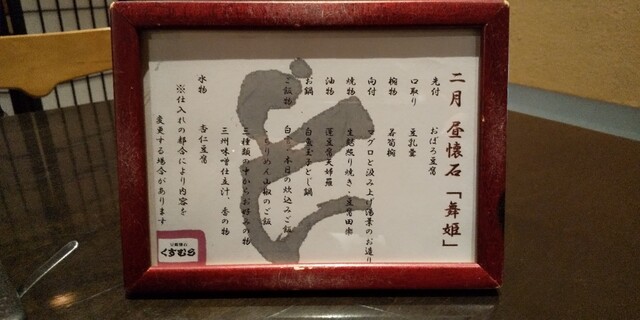 二月 昼懐石 「舞姫」
先付 おぼろ豆腐
口取り 豆乳羹
椀物 若筍椀
向付 マグロと汲み上げ湯葉のお造り
焼物 生麩照り焼き・豆腐田楽
油物 蓮豆腐天婦羅
お鍋 白魚玉子とじ鍋
ご飯物 白 本日の炊込みご飯
りめん山椒のご飯
三種類の中からお好みの物
三州味噌仕立汁、香の物
水物 杏仁豆腐
※仕入れの都合により内容を
変更する場合があります
豆腐懐石
くすむら